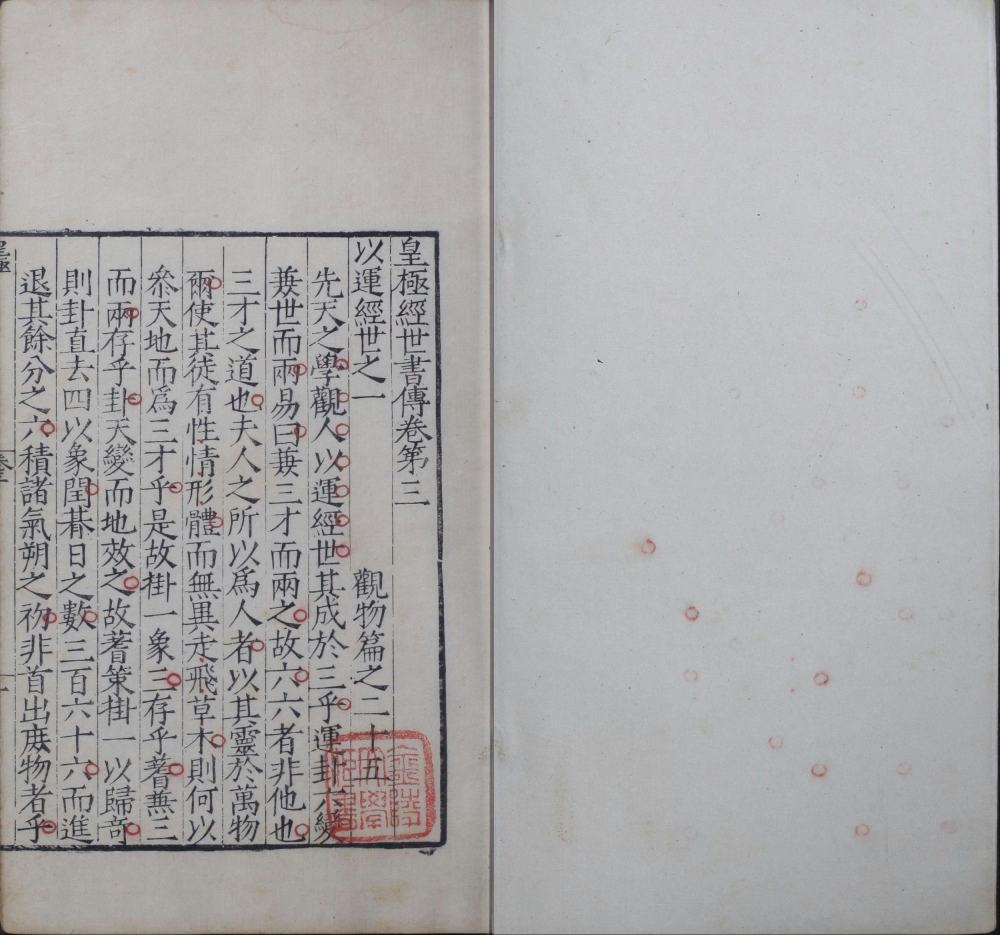 皇極經世書傳卷第三
以運經世之一　觀物篇之二十五
先天之學觀人以運經世其成於三乎運卦六變
兼世而兩易曰兼三才而兩之故六六者非他也
三才之道也夫人之所以爲人者以其靈於萬物
爾使其徒有性情形體而無異走飛草木則何以
叅天地而爲三才乎是故掛一象三存乎蓍無三
而兩存乎卦天變而地效之故蓍策掛一以歸竒
則卦直去四以象閏朞日之數三百六十六而進
退其餘分之六積諸氣朔之初非首出庻物者乎
皇極
卷三
一
金陵大學